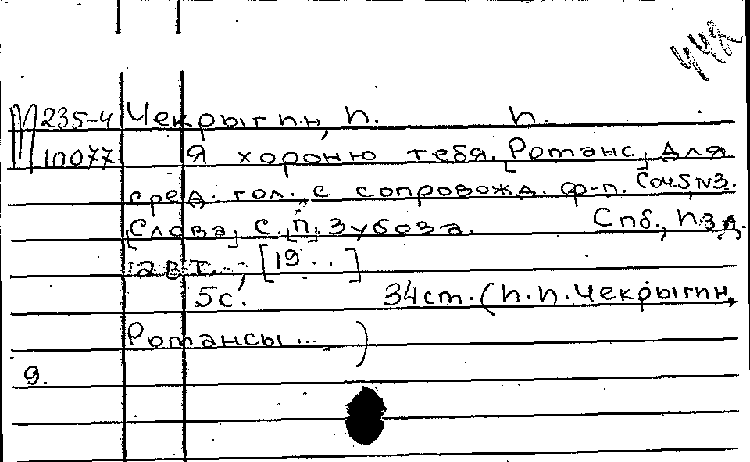 448
М 235-4 Чекрыгин, И. И.
10077 Я хороню тебя. [Романс, для
сред. гол. с сопровожд. ф-п. Соч.5, №3.
[Слова] С. П. Зубова. Спб., Изд.
авт., [19..]
5с. 34см. (И. И. Чекрыгин,
Романсы... )
9.